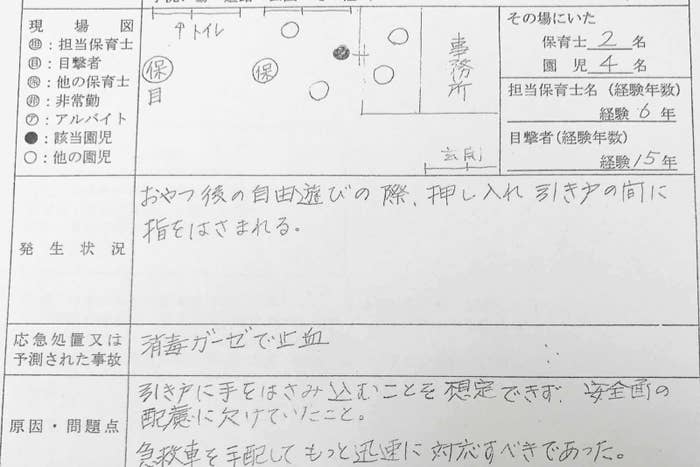 現場図
担:担当保育士
目:目撃者
保:他の保育士
非:非常勤
ア:アルバイト
●:該当園児
○:他の園児
トイレ
保
目
保
事務所
玄関
その場にいた
保育士 2 名
園児 4 名
担当保育士名(経験年数)
経験 6 年
目撃者(経験年数)
経験 15 年
発生状況
おやつ後の自由遊びの際、押し入れ 引き戸の間に
指をはさまれる。
応急処置又は
予測された事故
消毒ガーゼで止血
原因・問題点
引き戸に手をはさみ込むことを想定できず、安全面の
配慮に欠けていたこと。
急救車を手配して もっと迅速に対応すべきであった。